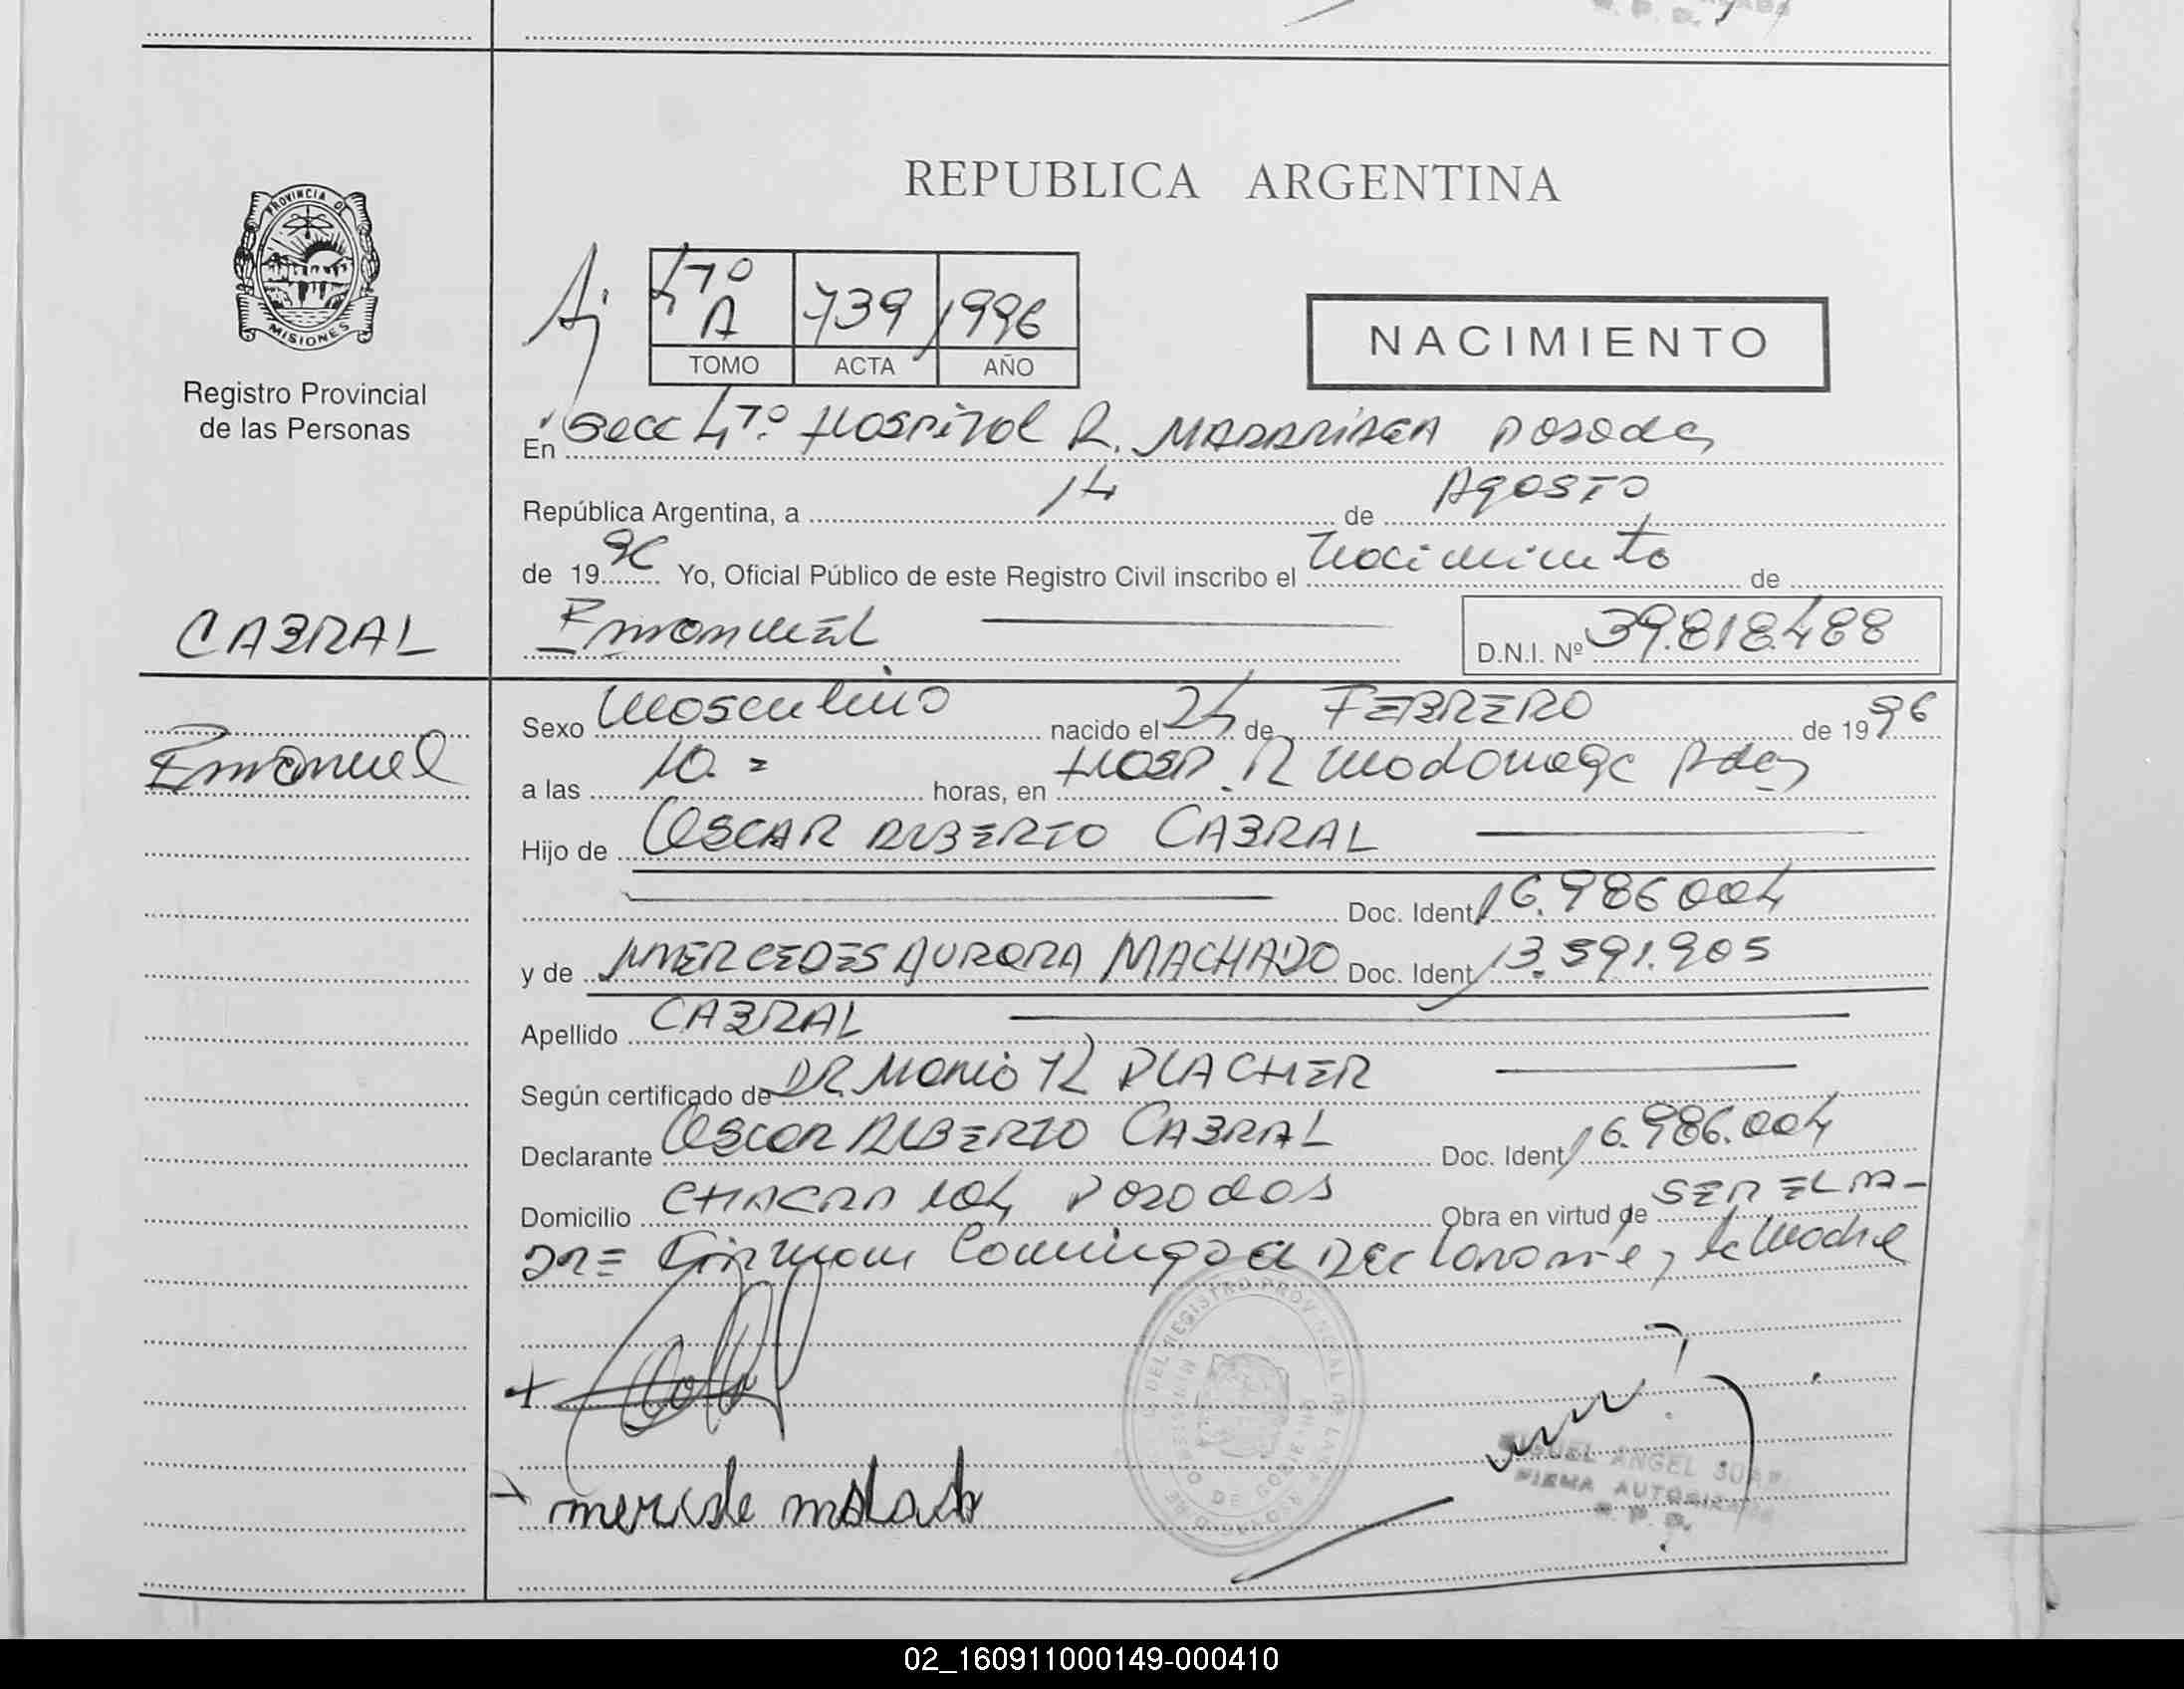 REPUBLICA ARGENTINA
PROVINCIA DE
MISIONES
Registro Provincial
de las Personas
Aj
4º A 739 1996
TOMO ACTA AÑO
NACIMIENTO
En Secc 4º Hospital R. MADARIAGA Posadas
República Argentina, a 14 de Agosto
de 1996 Yo, Oficial Público de este Registro Civil inscribo el Nacimiento de
CABRAL
Emanuel
D.N.I. Nº 39.818.488
Emanuel
Sexo Masculino nacido el 24 de FEBRERO de 1996
a las 10.= horas, en HOSP. R Madariaga Pdas
Hijo de OSCAR ALBERTO CABRAL
Doc. Ident. 16.986.004
y de MERCEDES AURORA MACHADO Doc. Ident. 13.591.905
Apellido CABRAL
Según certificado de DR Mario R PLACHER
Declarante Oscar ALBERTO CABRAL Doc. Ident. 16.986.004
Domicilio CHACRA 104 Posadas Obra en virtud de SER EL PA-
DRE Firman Conmigo el Declarante y la Madre
MIGUEL ANGEL
FIRMA AUTORIZADA
R. P. P.
02_160911000149-000410